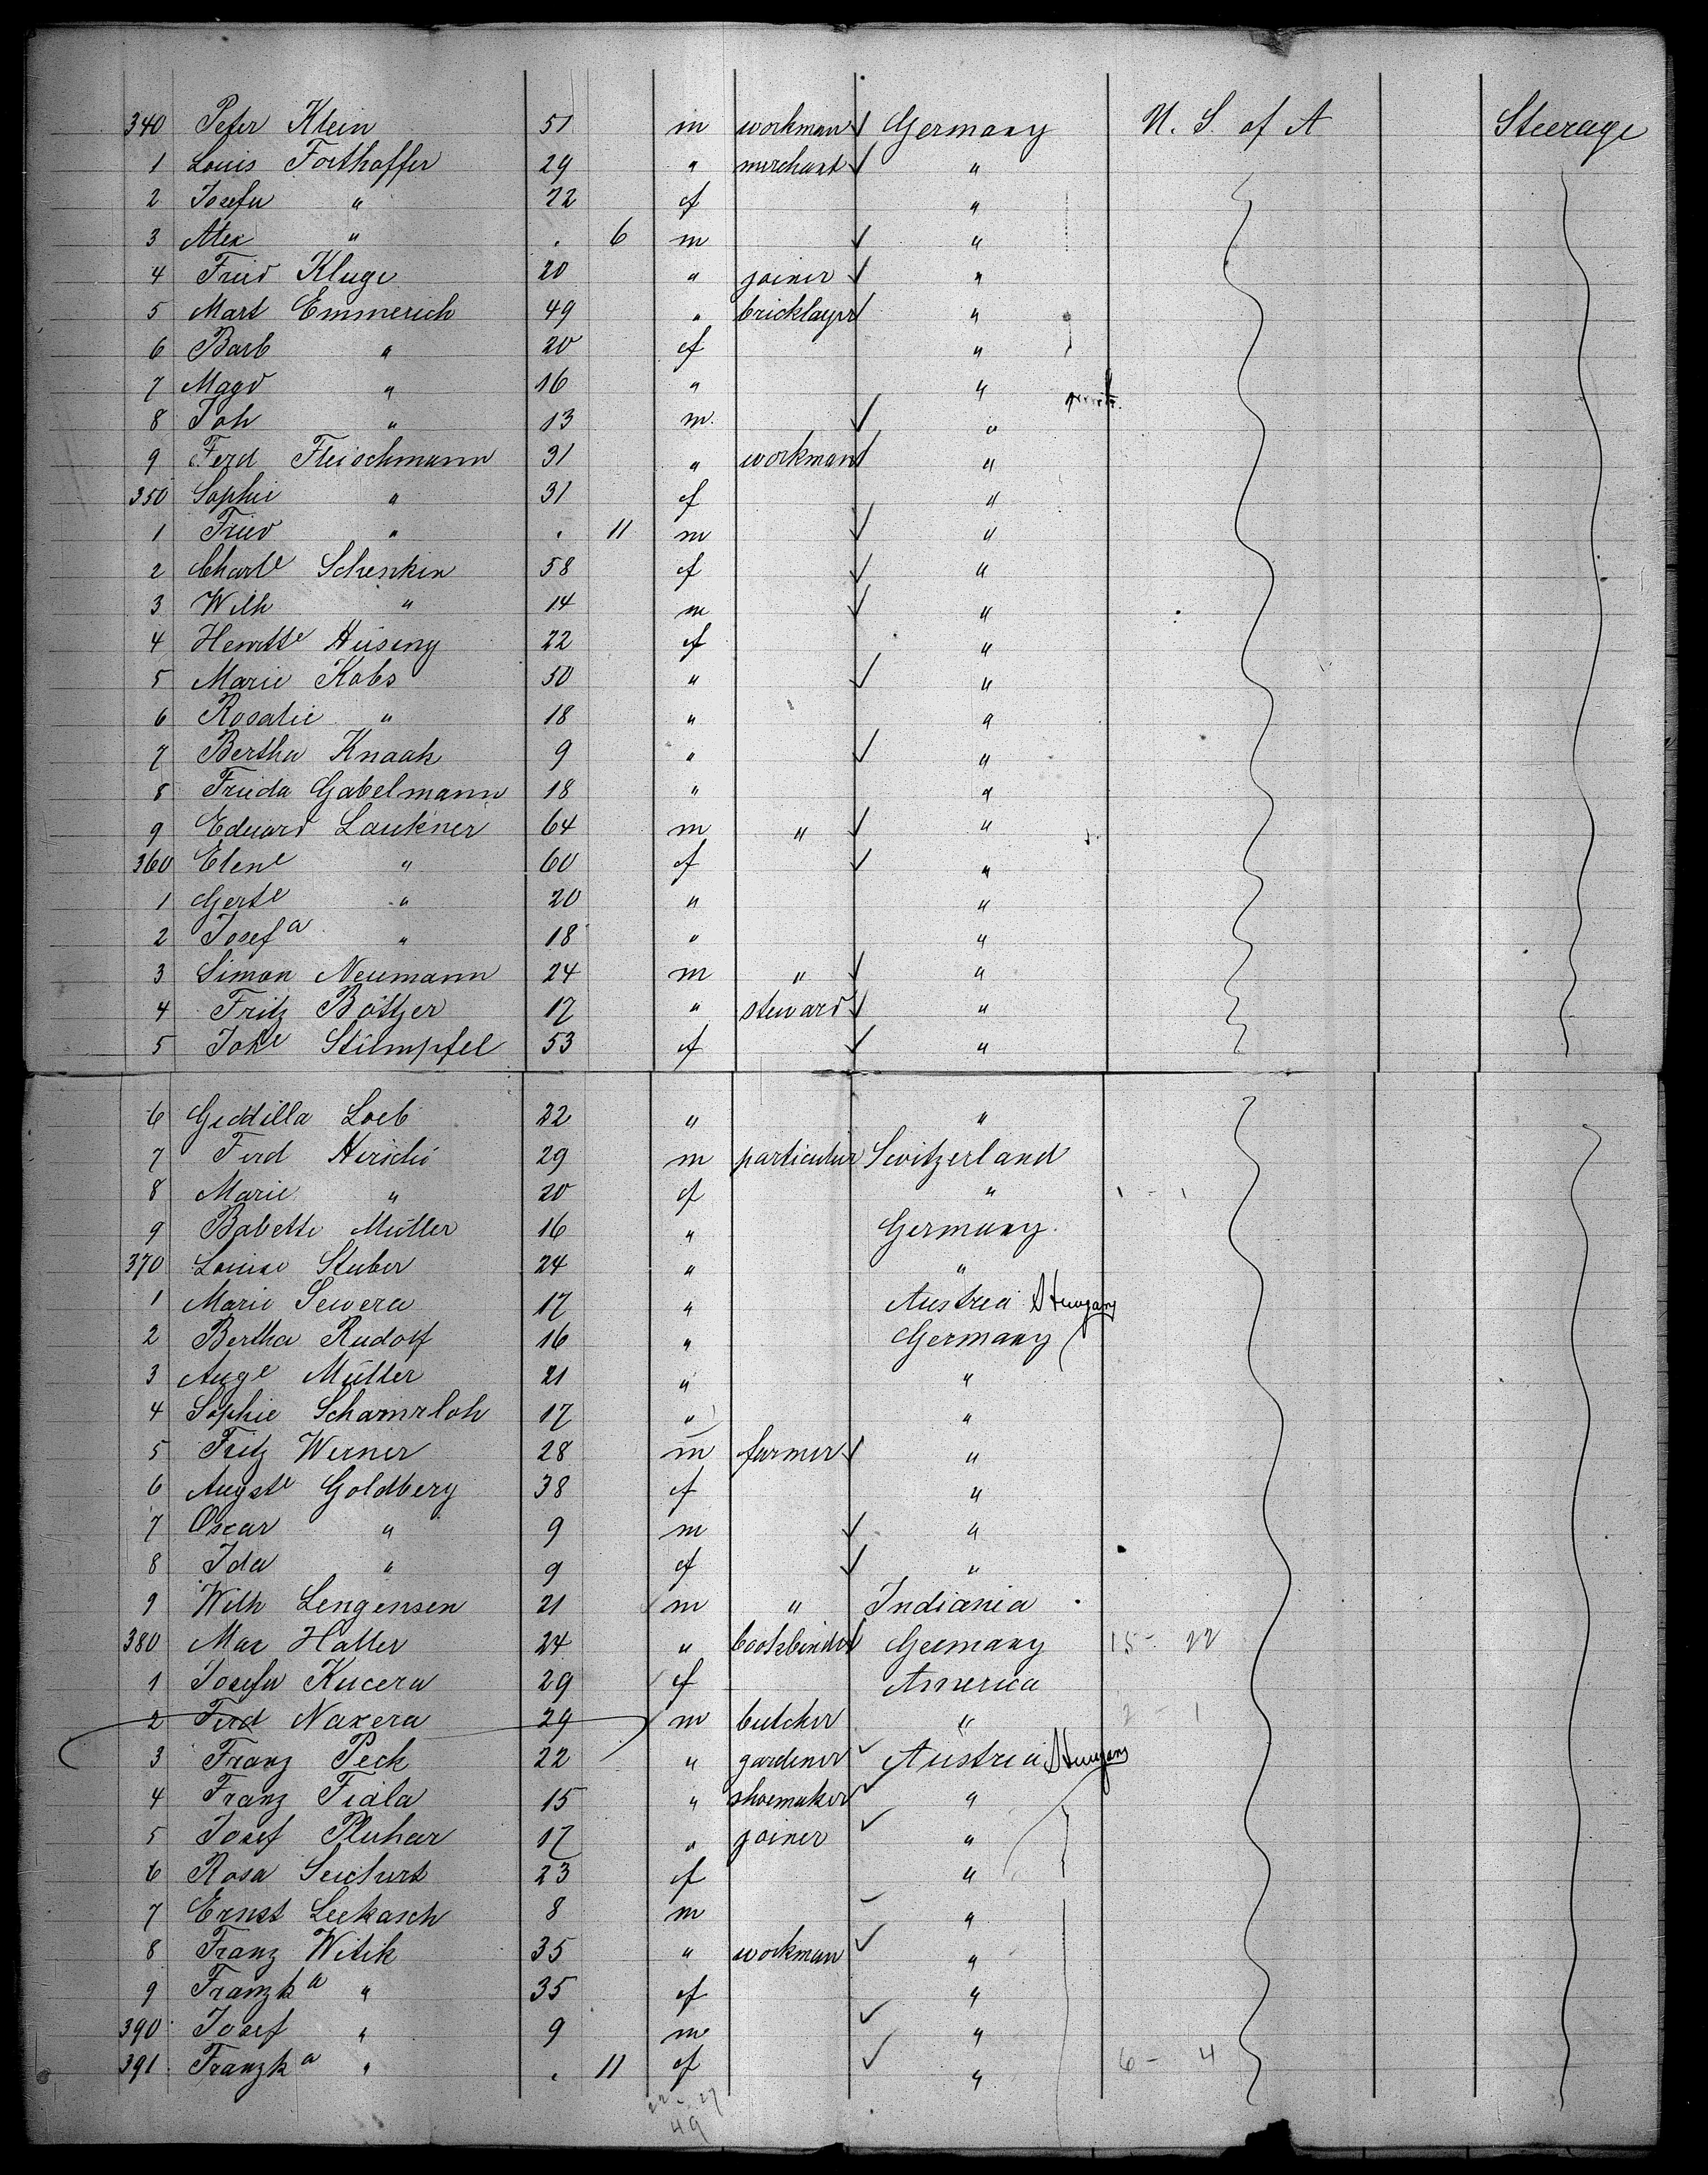 340 Peter Klein 51 m workman Germany U. S. of A Steerage
1 Louis Forthoffer 29 " merchant "
2 Josefa " 22 f "
3 Alex " . 6 m "
4 Fried Kluge 20 " joiner "
5 Mart Emmerich 49 " bricklayer "
6 Barb " 20 f "
7 Magd " 16 " "
8 Joh " 13 m. "
9 Ferd Fleischmann 31 " workman "
350 Sophie " 31 f "
1 Fried " . 11 m "
2 Charte Schenkin 58 f "
3 Wilh " 14 m "
4 Henrtte Hüseng 22 f "
5 Marie Kobs 50 " "
6 Rosalie " 18 " "
7 Bertha Knaak 9 " "
8 Frieda Gabelmann 18 " "
9 Eduard Laukner 64 m " "
360 Elene " 60 f "
1 Gerte " 20 " "
2 Josefa " 18 " "
3 Simon Neumann 24 m " "
4 Fritz Böttger 17 " steward "
5 Johe Stümpfel 53 f "
6 Loeb 22 " "
7 Ferd Hirschi 29 m particulier Switzerland
8 Marie " 20 f " 1 - 1
9 Babette Müller 16 " Germany.
370 Louise Stuber 24 " "
1 Marie Sewera 17 " Austria Hungary
2 Bertha Rudolf 16 " Germany
3 Auge Müller 21 " "
4 Sophie Scharnrloh 17 " "
5 Fritz Werner 28 m farmer "
6 Auguste Goldberg 38 f "
7 Oscar " 9 m "
8 Ida " 9 f "
9 Wilh Lengensen 21 m " Indiania
380 Max Haller 24 " bookbinder Germany 15 - 22
1 Josefa Kucera 29 f America
2 Ferd Naxera 29 m butcher " 2 - 1
3 Franz Peck 22 " gardener Austria Hungary
4 Franz Fiala 15 " shoemaker "
5 Josef Pluhar 17 " joiner "
6 Rosa Seichert 23 f "
7 Ernst Leekasch 8 m "
8 Franz Witik 35 " workman "
9 Franzka " 35 f "
390 Josef " 9 m "
391 Franzka " . 11 f " 6 - 4
22 - 27
49